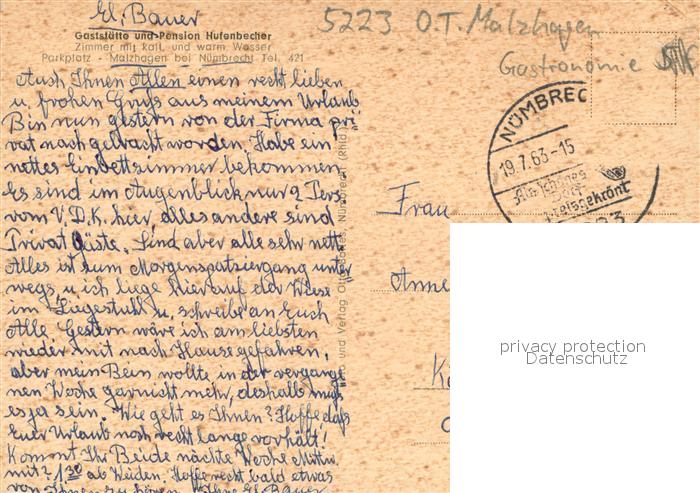 El. Bauer
Gaststätte und Pension Hufenbecher
Zimmer mit kalt. und warm. Wasser
Parkplatz - Malzhagen bei Nümbrecht Tel. 421
5223 O.T. Malzhagen
Gastronomie
NÜMBREC
19.7.63-15
Als schönes
Dorf
preisgekrönt
Auch Ihnen Allen einen recht lieben
u. frohen Gruß aus meinem Urlaub
Bin nun gestern von der Firma pri
vat nach gebracht worden. Habe ein
nettes Einbettzimmer bekommen.
Es sind im Augenblick nur 2 Pers
vom V.D.K. hier, alles andere sind
Privat Gäste. Sind aber alle sehr nett
Alles ist zum Morgenspatziergang unter
wegs u ich liege hier auf der Wiese
im Liegestuhl u, schreibe an Euch
Alle. Gestern wäre ich am liebsten
wieder mit nach Hause gefahren,
aber mein Bein wollte in der vergang
nen Woche garnicht mehr, deshalb muß
es ja sein. Wie geht es Ihnen? Hoffe daß
Euer Urlaub noch recht lange vorhält!
Kommt Ihr Beide nächte Woche Mittw.
mit? 1.30 ab Weiden. Hoffe recht bald etwas
von Ihnen zu hören. Ihre El. Bauer
und Verlag Nümbrecht (Rhld.)
Frau
Anne
privacy protection
Datenschutz